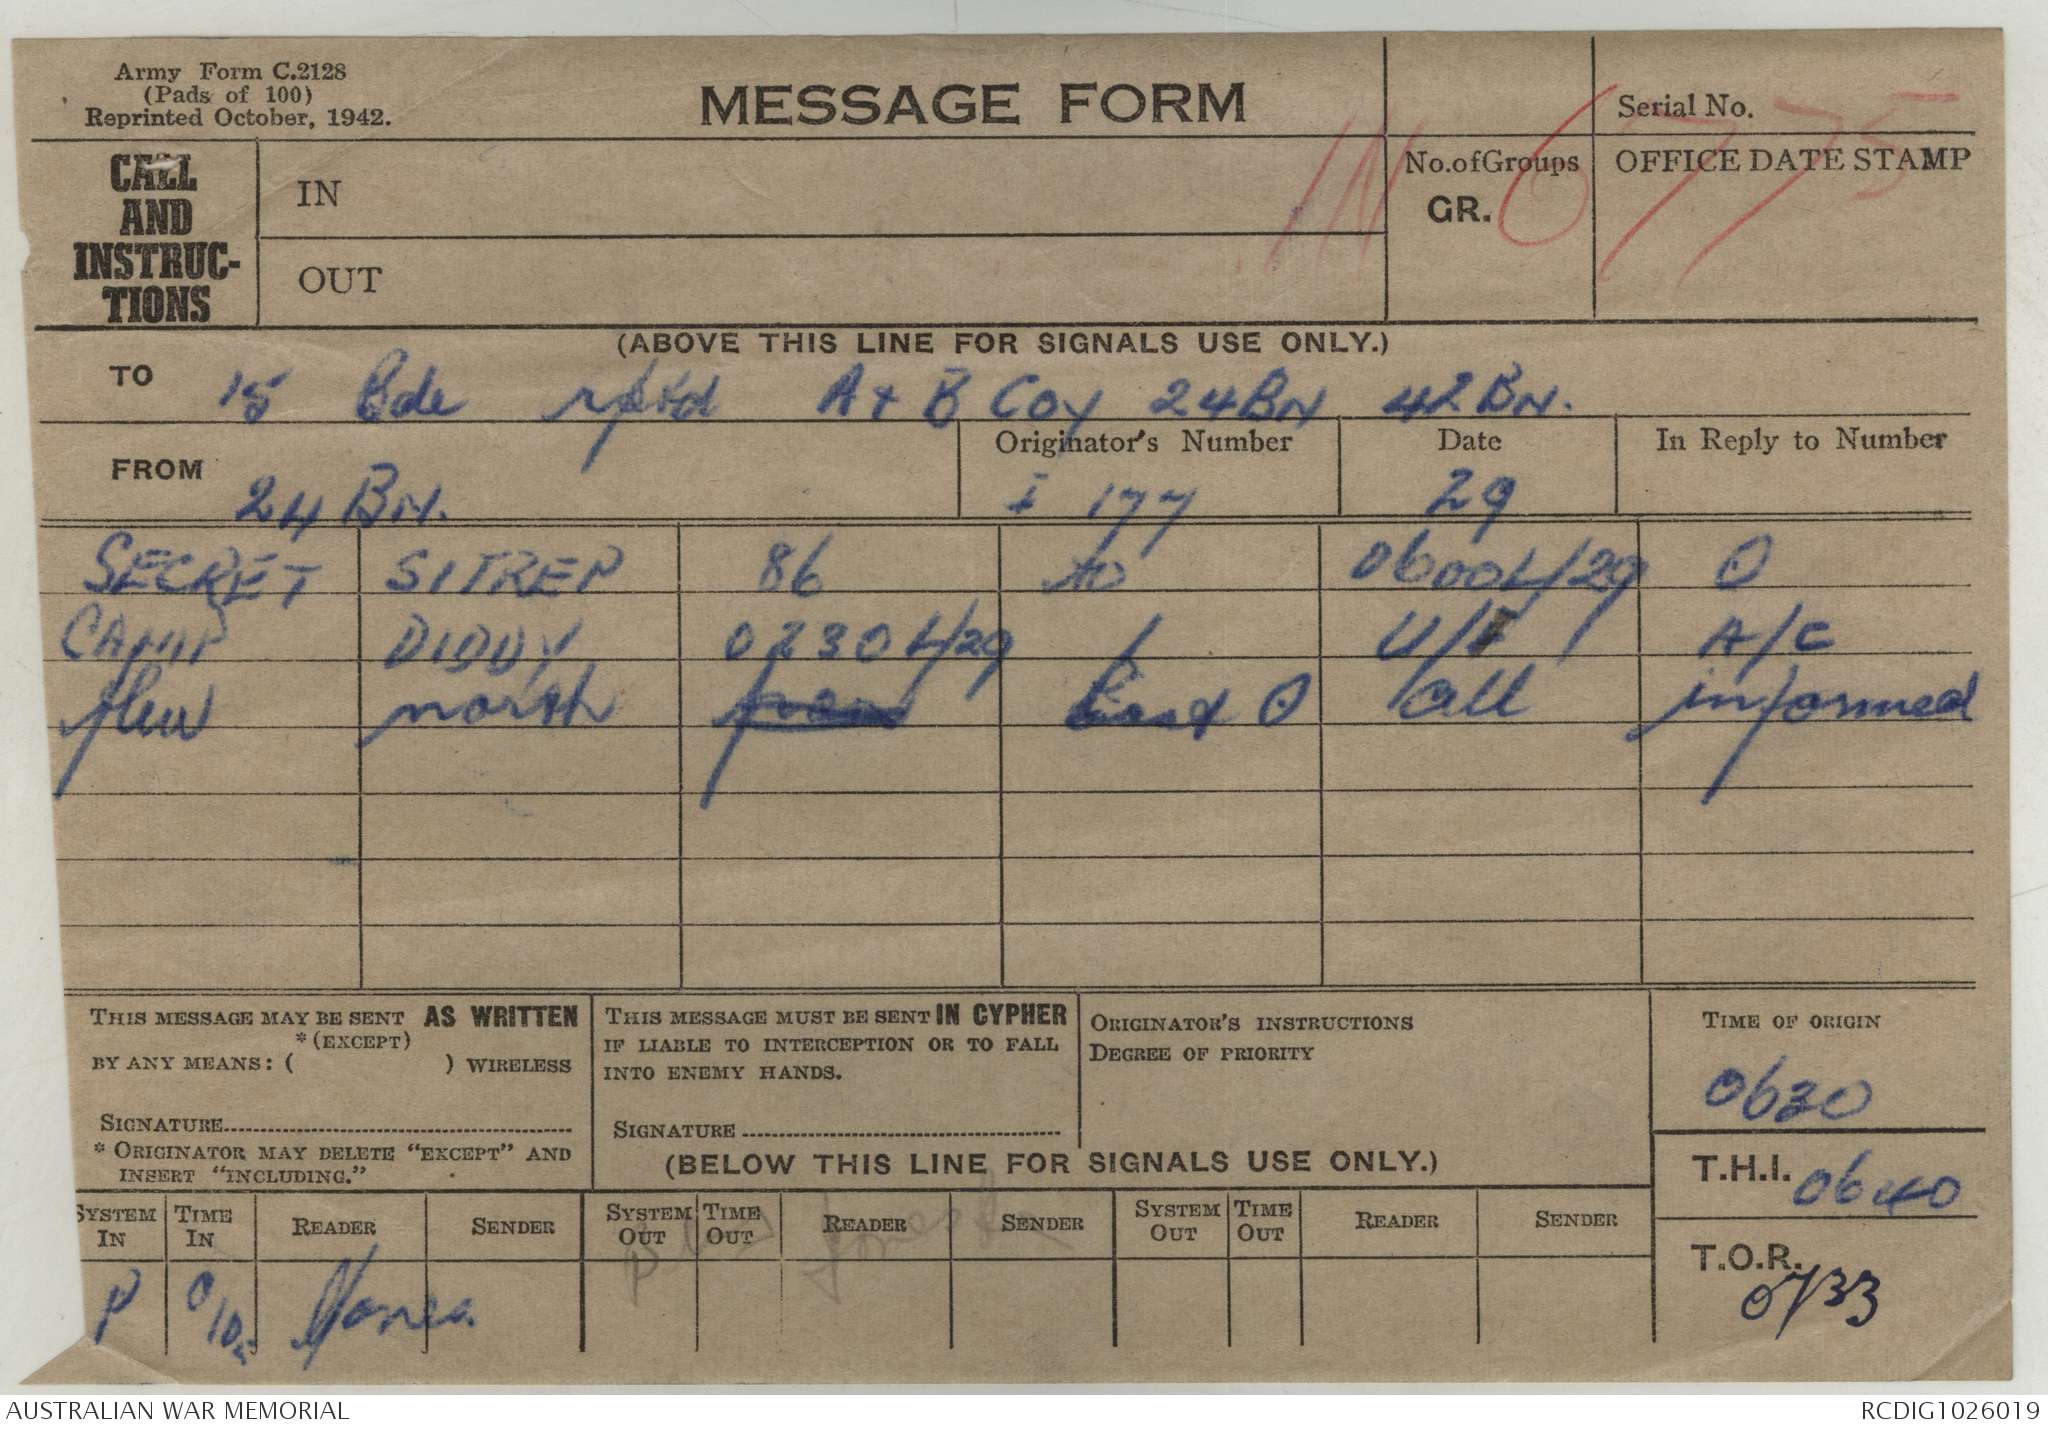 Army Form C.2128
(Pads of 100)
Reprinted October, 1942.
MESSAGE FORM
Serial No.
IN 6775
CALL AND INSTRUC-TIONS
IN
OUT
No. of Groups
GR.
OFFICE DATE STAMP
(ABOVE THIS LINE FOR SIGNALS USE ONLY.)
TO 15 Bde rptd A + B Coy 24 BN 42 BN.
FROM 24 BN.
Originator's Number I 177
Date 29
In Reply to Number
SECRET SITREP 86 to 0600L/29 O
CAMP DIDDY 0230L/29 1 U/I A/C
flew north from East O all informed
THIS MESSAGE MAY BE SENT AS WRITTEN
*(EXCEPT)
BY ANY MEANS: ( ) WIRELESS
SIGNATURE
* ORIGINATOR MAY DELETE "EXCEPT" AND
INSERT "INCLUDING."
THIS MESSAGE MUST BE SENT IN CYPHER
IF LIABLE TO INTERCEPTION OR TO FALL
INTO ENEMY HANDS.
SIGNATURE
ORIGINATOR'S INSTRUCTIONS
DEGREE OF PRIORITY
TIME OF ORIGIN
0630
(BELOW THIS LINE FOR SIGNALS USE ONLY.)
T.H.I. 0640
T.O.R. 0733
SYSTEM IN TIME IN READER SENDER SYSTEM OUT TIME OUT READER SENDER SYSTEM OUT TIME OUT READER SENDER
P
AUSTRALIAN WAR MEMORIAL
RCDIG1026019